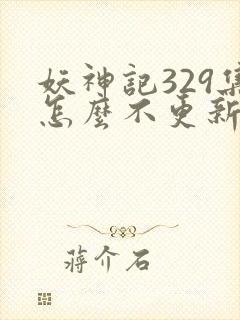 妖神記329集
怎麼不更新
蔣介石